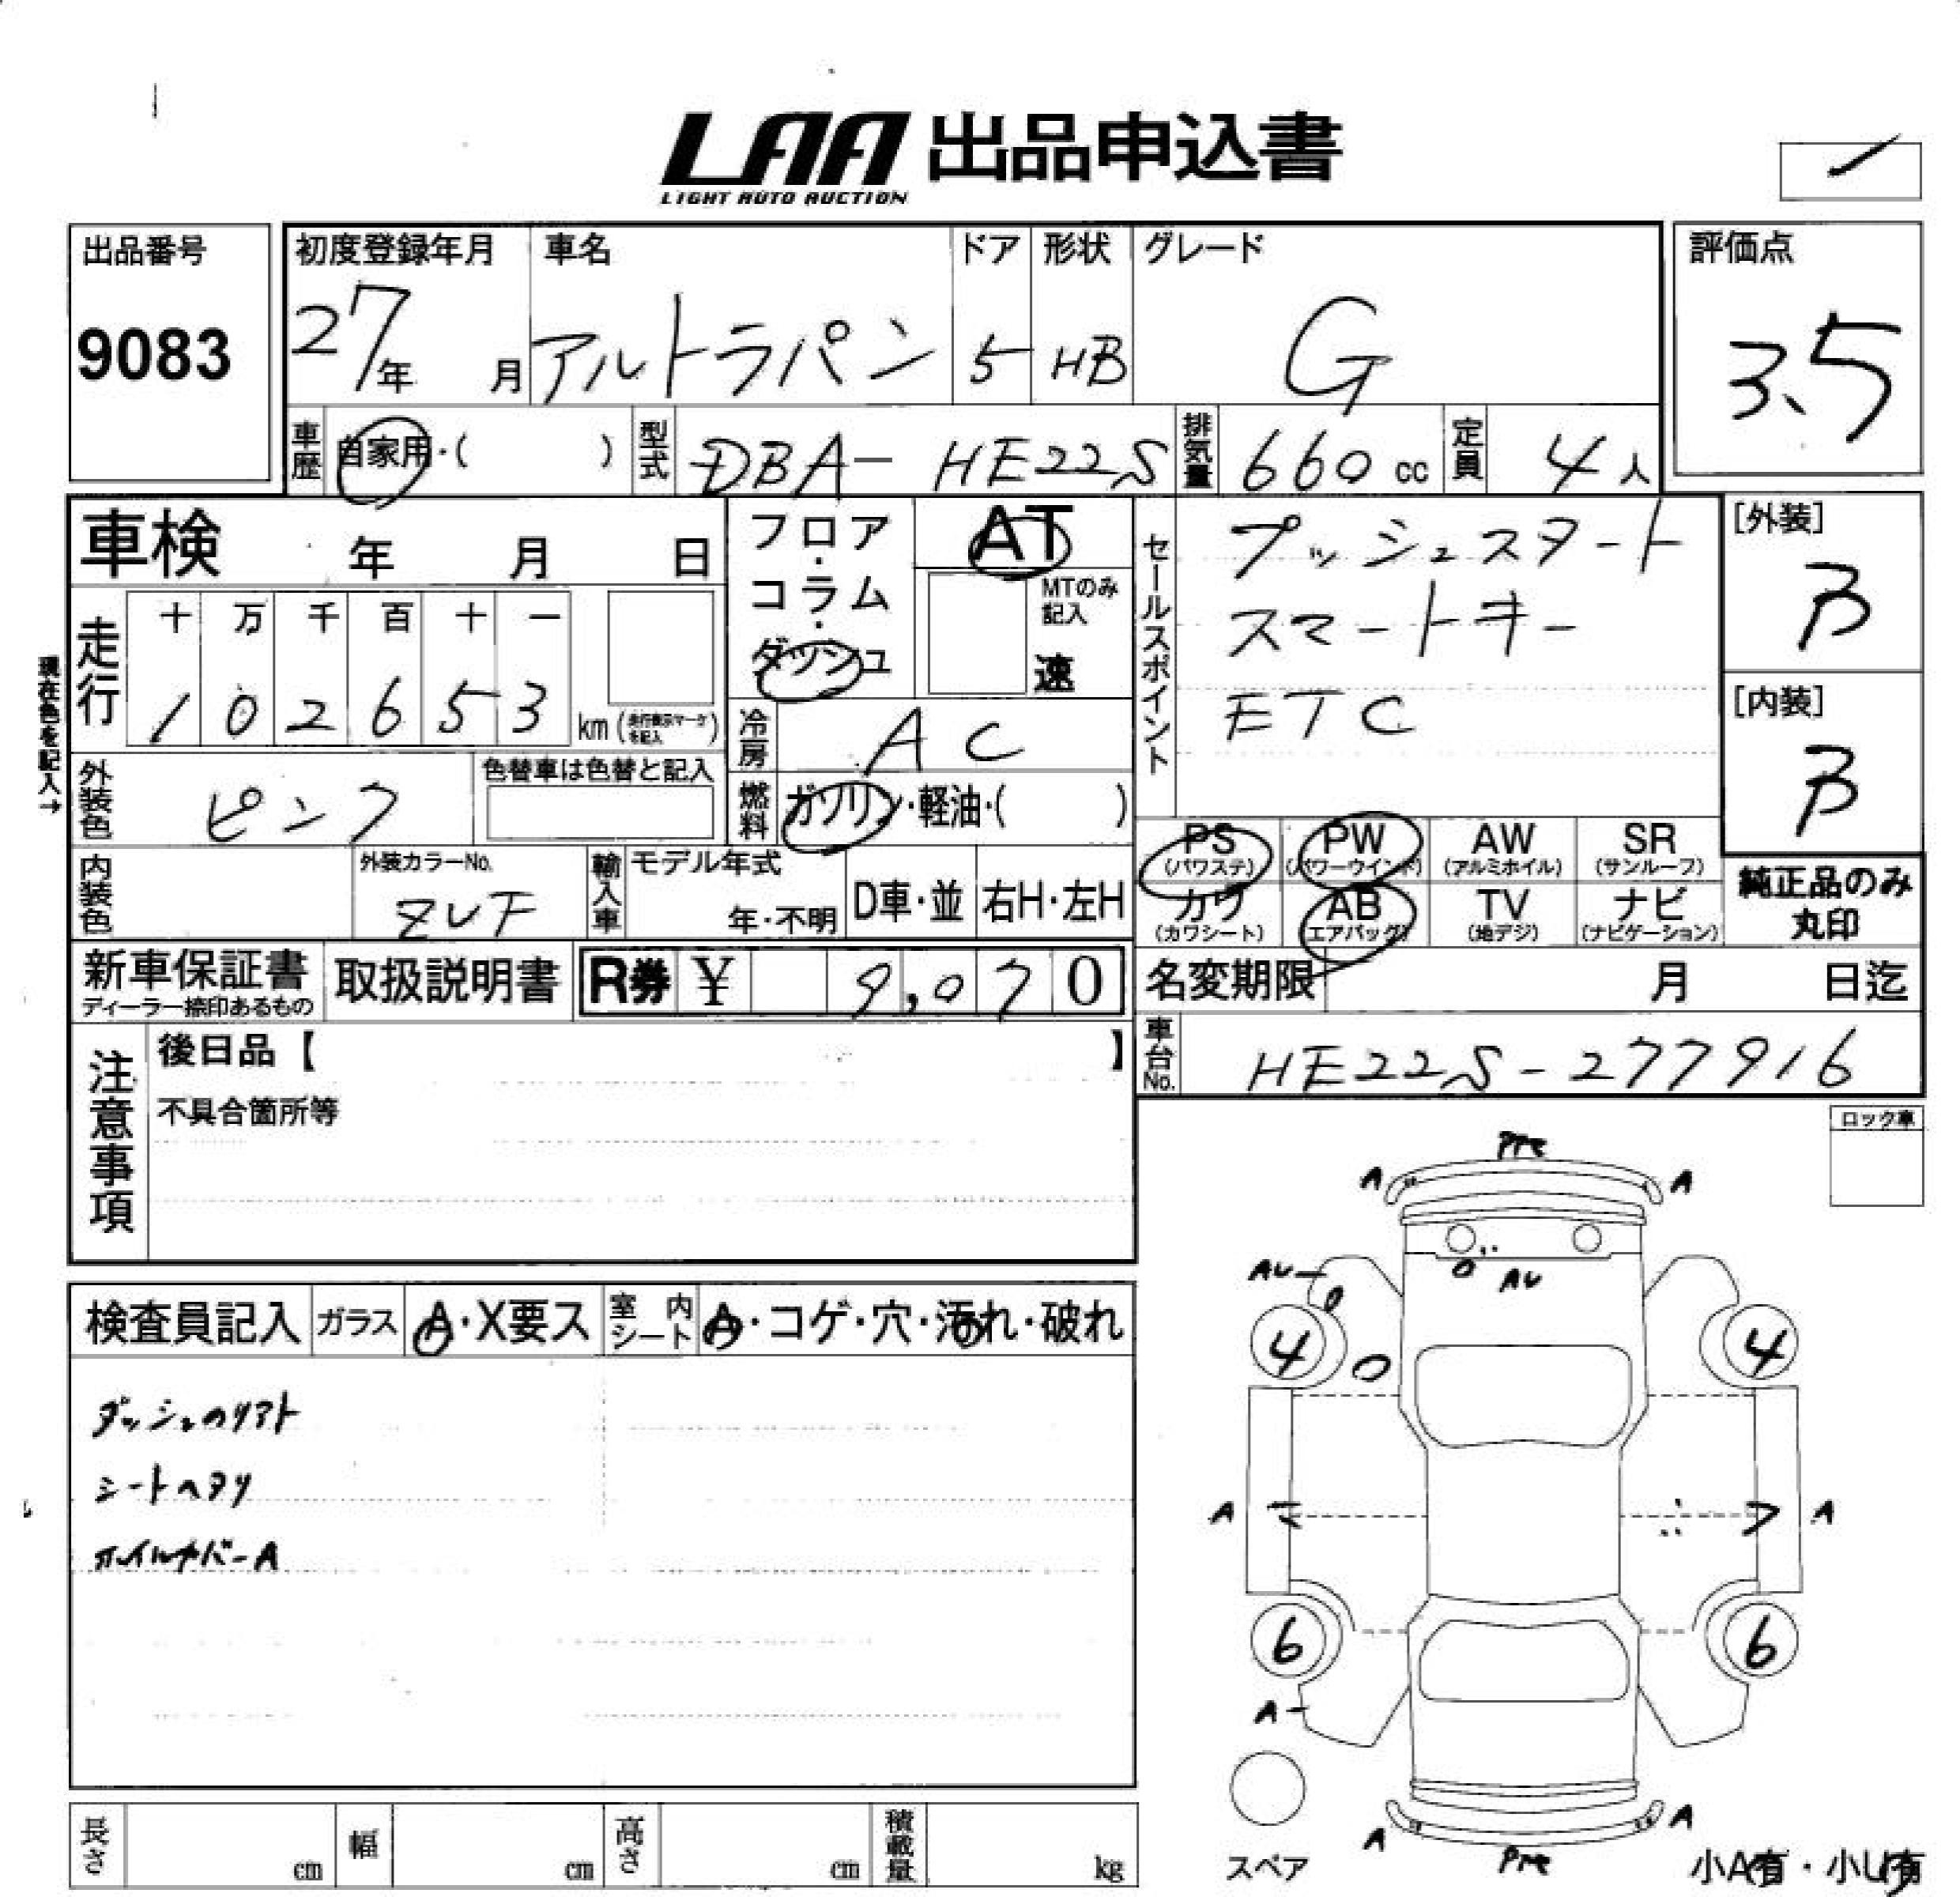 LAA 出品申込書
LIGHT AUTO AUCTION
出品番号
9083
初度登録年月
27年 月
車名
アルトラパン
ドア
5
形状
HB
グレード
G
評価点
3.5
車歴 自家用・( )
型式 DBA- HE22S
排気量 660 cc
定員 4人
車検 年 月 日
フロア・コラム・ダッシュ
AT
MTのみ記入
速
セールスポイント
プッシュスタート
スマートキー
ETC
[外装]
B
[内装]
B
現在色を記入→
走行
十 万 千 百 十 一
1 0 2 6 5 3 km (走行表示マークを記入)
冷房 AC
外装色 ピンク
色替車は色替と記入
燃料 ガソリン・軽油・( )
内装色
外装カラーNo.
ZUF
輸入車
モデル年式
年・不明
D車・並
右H・左H
PS (パワステ)
PW (パワーウインド)
AW (アルミホイル)
SR (サンルーフ)
カワ (カワシート)
AB (エアバッグ)
TV (地デジ)
ナビ (ナビゲーション)
純正品のみ
丸印
新車保証書
ディーラー捺印あるもの
取扱説明書
R券 ¥ 9,070
名変期限 月 日迄
車台No. HE22S-277916
注意事項
後日品【 】
不具合箇所等
ロック車
検査員記入
ガラス A・X要ス
室内シート A・コゲ・穴・汚れ・破れ
ダッシュのリアト
シートヘタリ
ホイルカバーA
A A
AU
AU
4 4
A A
6 6
A
A A
スペア
小A有・小U有
長さ cm
幅 cm
高さ cm
積載量 kg